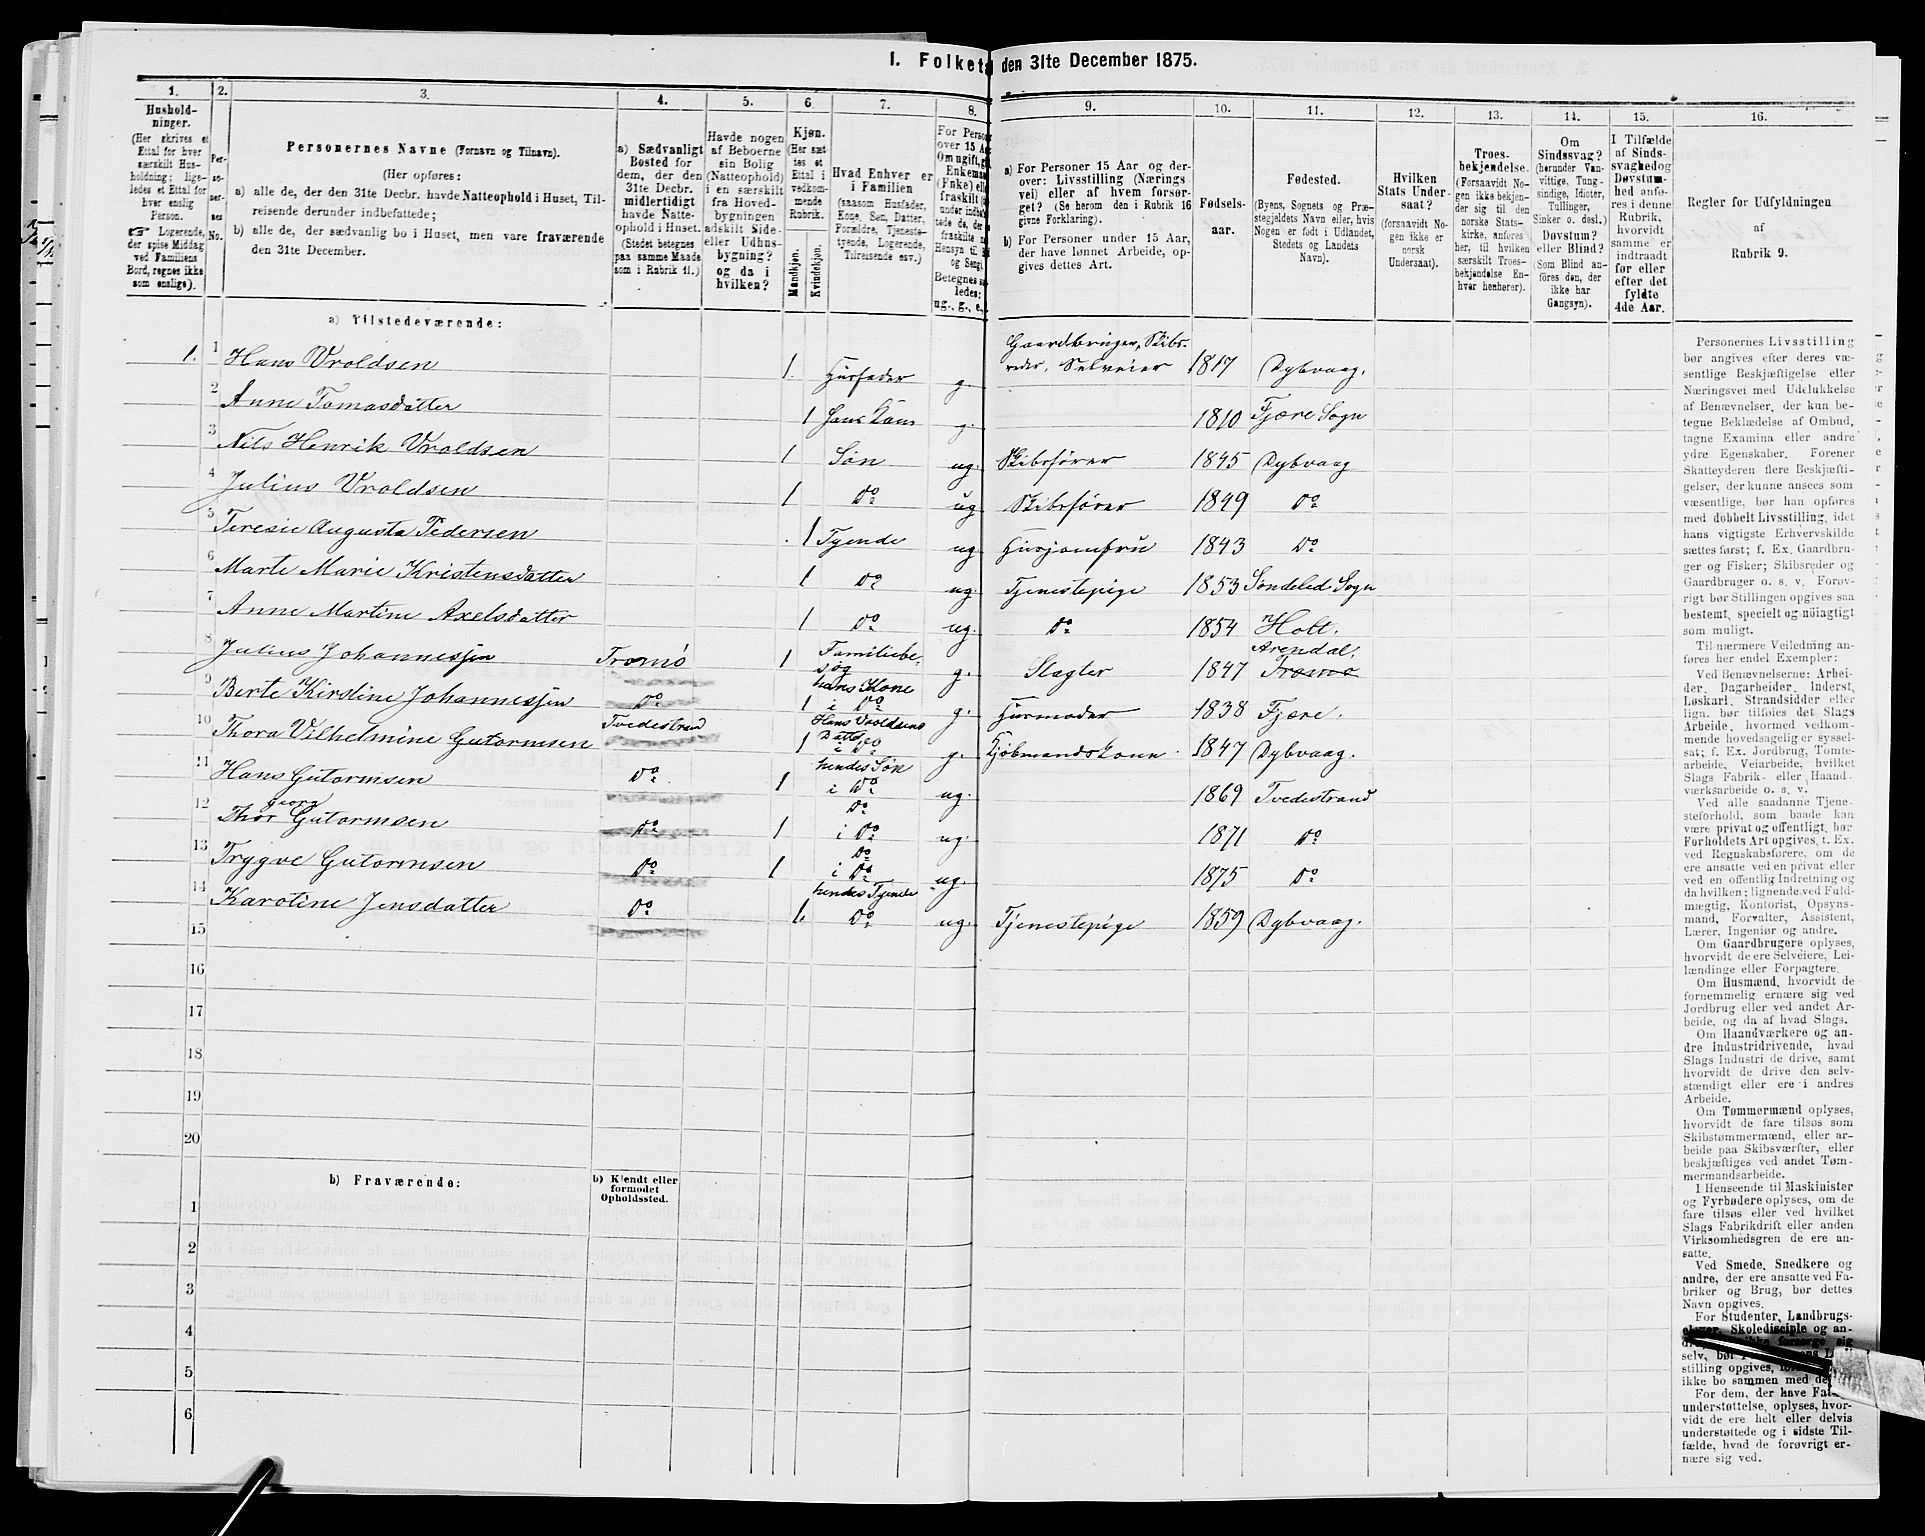 1. Folketæ den 31te December 1875.
1. 2. 3. 4. 5. 6. 7. 8. 9. 10. 11. 12. 13. 14. 15. 16.
Hushold-
ninger.
(Her skrives et
Ettal for hver
særskilt Hus-
holdning; lige-
ledes et Ettal for
hver enslig
Person.
☞ Logerende,
der spise Middag
ved Familiens
Bord, regnes ikke
som enslige).
Per-
so-
ner-
nes
No.
Personernes Navne (Fornavn og Tilnavn).
(Her opføres:
a) alle de, der den 31te Decbr. havde Natteophold i Huset, Til-
reisende derunder indbefattede;
b) alle de, der sædvanlig bo i Huset, men vare fraværende
den 31te December.
a) Sædvanligt
Bosted for
dem, der den
31te Decbr.
midlertidigt
havde Natte-
ophold i Huset.
(Stedet betegnes
paa samme Maade
som i Rubrik 11.)
Havde nogen
af Beboerne
sin Bolig
(Natteophold)
i en særskilt
fra Hoved-
bygningen
adskilt Side-
eller Udhus-
bygning?
og da i
hvilken?
Kjøn.
(Her sæt-
tes et
Ettal i
vedkom-
mende
Rubrik.
Mandkjøn.
Kvindekjøn.
Hvad Enhver er
i Familien
(saasom Husfader,
Kone, Søn, Datter,
Forældre, Tjeneste-
tyende, Logerende,
Tilreisende osv.)
For Person
over 15 Aa
Om ugift, gift
Enkemand
(Enke) eller
fraskilt
Betegnes saa-
ledes:
ug., g., e.,
a) For Personer 15 Aar og der-
over: Livsstilling (Nærings
vei) eller af hvem forsør-
get? (Se herom den i Rubrik 16
givne Forklaring).
b) For Personer under 15 Aar,
der have lønnet Arbeide, op-
gives dettes Art.
Fødsels-
aar.
Fødested.
(Byens, Sognets og Præ-
stegjeldets Navn eller, hvis
Nogen er født i Udlandet,
Stedets og Landets
Navn).
Hvilken
Stats Under-
saat?
(forsaavidt No-
gen ikke er
norsk
Undersaat).
Troes-
bekjendelse.
(Forsaavidt No-
gen ikke bekjen-
der sig til den
norske Stats-
kirke, anføres
her, til hvilken
særskilt Troes-
bekjendelse En-
hver henhører).
Om
Sindssvag?
(herunder Van-
vittige, Tung-
sindige, Idioter,
Tullinger,
Sinker o. desl.)
Døvstum?
eller Blind?
(Som Blind an-
føres den, der
ikke har
Gangsyn).
I Tilfælde
af Sinds-
svaghed og
Døvstum-
hed anfø-
res i denne
Rubrik,
hvorvidt
samme er
indtraadt
før eller
efter det
fyldte
4de Aar.
Regler for Udfyldningen
af
Rubrik 9.
a) Tilstedeværende:
1. 1 Hans Vroldsen 1. Husfader g. Gaardbruger, Skibs-
reder, Selveier 1817 Dybvaag.
2 Anne Tomasdatter 1 Hans Kone g. 1810 Fjære Sogn
3 Nils Henrik Vroldsen 1 Søn ug. Skibsfører 1845 Dybvaag
4 Julius Vroldsen 1 Do ug Skibsfører 1849 Do
5 Teresie Augusta Pedersen 1 Tyende ug Husjomfru 1843 Do
6 Marte Marie Kristensdatter 1 Do ug. Tjenestepige 1853 Søndeled Sogn
7 Anne Martine Axelsdatter 1 Do ug. Do 1854 Holt.
8 Julius Johannesjen Tromø 1 Familiebe-
søg g. Slagter 1847 Arendal.
Tromø
9 Berte Kirstine Johannesjen Do 1 hans Kone
i Do g. Husmoder 1838 Fjære.
10 Thora Vilhelmine Gutormsen Tvedestrand 1 Hans Vroldsens
Datter
i Do g. Kjøbmandskone 1847 Dybvaag.
11 Hans Gutormsen Do 1 hendes Søn
i Do ug. 1869 Tvedestrand
12 Thor Georg Gutormsen Do 1 Do
i Do ug. 1871 Do
13 Trygve Gutormsen Do 1 Do
i Do ug. 1875 Do
14 Karoline Jensdatter Do 1. hendes Tyende
Do ug. Tjenestepige 1859 Dybvaag.
15
16
17
18
19
20
b) Fraværende:
b) Kjendt eller
formodet
Opholdssted.
1
2
3
4
5
6
Personernes Livsstilling
bør angives efter deres væ-
sentlige Beskjæftigelse eller
Næringsvei med Udelukkelse
af Benævnelser, der kun be-
tegne Beklædelse af Ombud,
tagne Examina eller andre
ydre Egenskaber. Forener
Skatteyderen flere Beskjæfti-
gelser, der kunne ansees som
væsentlige, bør han opføres
med dobbelt Livsstilling, idet
hans vigtigste Erhvervskilde
sættes først; f. Ex. Gaardbru-
ger og Fisker; Skibsreder og
Gaardbruger o. s. v. Forøv-
rigt bør Stillingen opgives saa
bestemt, specielt og nøiagtigt
som muligt.
Til nærmere Veiledning an-
føres her endel Exempler:
Ved Benævnelserne: Arbei-
der, Dagarbeider, Inderst,
Løskarl, Strandsidder eller
lign. bør tilføies det Slags
Arbeide, hvormed vedkom-
mende hovedsagelig er syssel-
sat; f. Ex. Jordbrug, Tomte-
arbeide, Veiarbeide, hvilket
Slags Fabrik- eller Haand-
værksarbeide o. s. v.
Ved alle saadanne Tjene-
steforhold, som baade kan
være privat og offentligt, bør
Forholdets Art opgives, t. Ex.
ved Regnskabsførere, om de
ere ansatte ved en privat eller
ved en offentlig Indretning og
da hvilken; lignende ved Fuld-
mægtig, Kontorist, Opsyns-
mand, Forvalter, Assistent,
Lærer, Ingeniør og andre.
Om Gaardbrugere oplyses,
hvorvidt de ere Selveiere, Lei-
lændinge eller Forpagtere.
Om Husmænd, hvorvidt de
fornemmelig ernære sig ved
Jordbrug eller ved andet Ar-
beide, og da af hvad Slags.
Om Haandværkere og an-
dre Industridrivende, hvad
Slags Industri de drive, samt
hvorvidt de drive den selv-
stændigt eller ere i andres
Arbeide.
Om Tømmermænd oplyses,
hvorvidt de fare tilsøs som
Skibstømmermænd, eller ar-
beide paa Skibsværfter, eller
beskjæftiges ved andet Tøm-
mermandsarbeide.
I Henseende til Maskinister
og Fyrbødere oplyses, om de
fare tilsøs eller ved hvilket
Slags Fabrikdrift eller anden
Virksomhedsgren de ere an-
satte.
Ved Smede, Snedkere og
andre, der ere ansatte ved Fa-
briker og Brug, bør dettes
Navn opgives.
For Studenter, Landbrugs-
elever, Skoledisciple og an-
ikke forsørge sig
selv, bør
stilling opgives,
ikke bo sammen med
For dem, der have
understøttelse, oplyses, hvor-
vidt de ere helt eller delvis
understøttede og i sidste Til-
fælde, hvad de forøvrigt er-
nære sig ved.